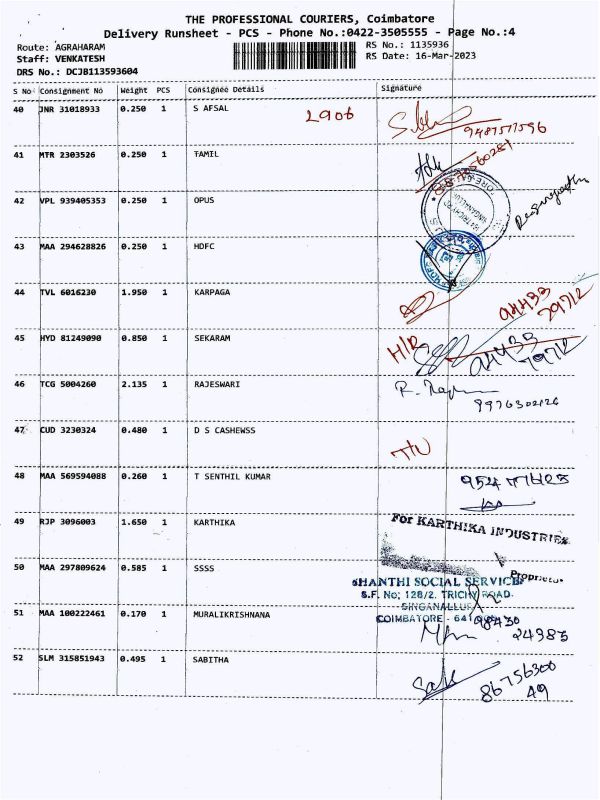 THE PROFESSIONAL COURIERS, Coimbatore
Delivery Runsheet - PCS - Phone No.:0422-3505555 - Page No.:4
Route: AGRAHARAM
RS No.: 1135936
Staff: VENKATESH
RS Date: 16-Mar-2023
DRS No.: DCJB113593604
S No Consignment No Weight PCS Consignee Details Signature
40 JNR 31018933 0.250 1 S AFSAL 2906
9487577596
41 MTR 2303526 0.250 1 TAMIL
42 VPL 939405353 0.250 1 OPUS
43 MAA 294628826 0.250 1 HDFC
44 TVL 6016230 1.950 1 KARPAGA
94433
79712
45 HYD 81249090 0.850 1 SEKARAM
H/R
94433
79712
46 TCG 5004260 2.135 1 RAJESWARI
9976302126
47 CUD 3230324 0.480 1 D S CASHEWSS
48 MAA 569594088 0.260 1 T SENTHIL KUMAR
49 RJP 3096003 1.650 1 KARTHIKA
For KARTHIKA INDUSTRIES
50 MAA 297809624 0.585 1 SSSS
Proprietor
SHANTHI SOCIAL SERVICE
S.F. No; 128/2. TRICHY ROAD
SINGANALLUR
COIMBATORE - 641
51 MAA 100222461 0.170 1 MURALIKRISHNANA
98430
24983
52 SLM 315851943 0.495 1 SABITHA
86756300
49